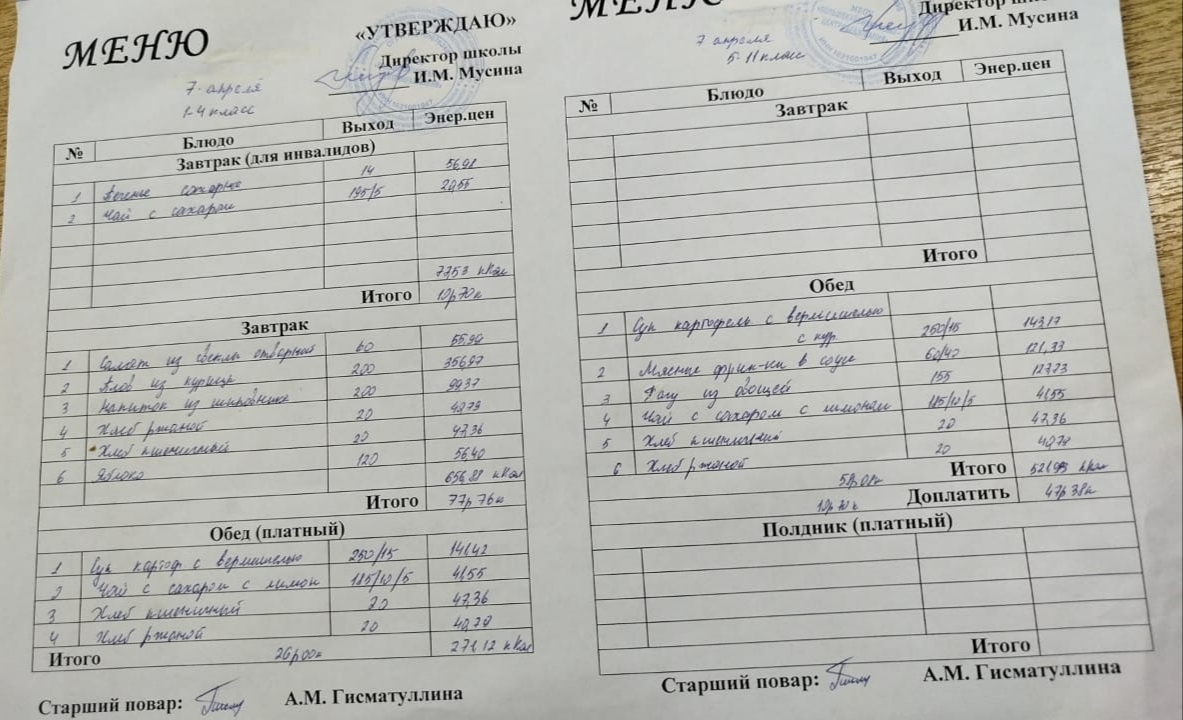 МЕНЮ
«УТВЕРЖДАЮ»
Директор школы
И.М. Мусина
7 апреля
1-4 класс
№ Блюдо Выход Энер.цен
Завтрак (для инвалидов)
1 Печенье сахарное 14 56,98
2 Чай с сахаром 195/5 20,55
77,53 кКал
Итого 10р70к
Завтрак
1 Салат из свеклы отварной 60 55,90
2 Плов из курицы 200 356,97
3 Напиток из шиповника 200 99,37
4 Хлеб ржаной 20 40,78
5 Хлеб пшеничный 20 47,36
6 Яблоко 120 56,40
656,88 кКал
Итого 77р 76к
Обед (платный)
1 Суп картоф с вермишелью 250/15 141,42
2 Чай с сахаром с лимон 185/10/5 41,55
3 Хлеб пшеничный 20 47,36
4 Хлеб ржаной 20 40,79
Итого 26р00к 271,12 кКал
Старший повар: А.М. Гисматуллина
МЕНЮ
Директор
И.М. Мусина
7 апреля
5-11 класс
№ Блюдо Выход Энер.цен
Завтрак
Итого
Обед
1 Суп картофель с вермишелью
с кур. 250/15 143,17
2 Мясные фрик-ки в соусе 60/40 121,33
3 Рагу из овощей 155 127,73
4 Чай с сахаром с лимоном 185/10/5 41,55
5 Хлеб пшеничный 20 47,36
6 Хлеб ржаной 20 40,78
Итого 521,93 кКал
58р,08к
Доплатить 47р 38к
10р 70к
Полдник (платный)
Итого
Старший повар: А.М. Гисматуллина